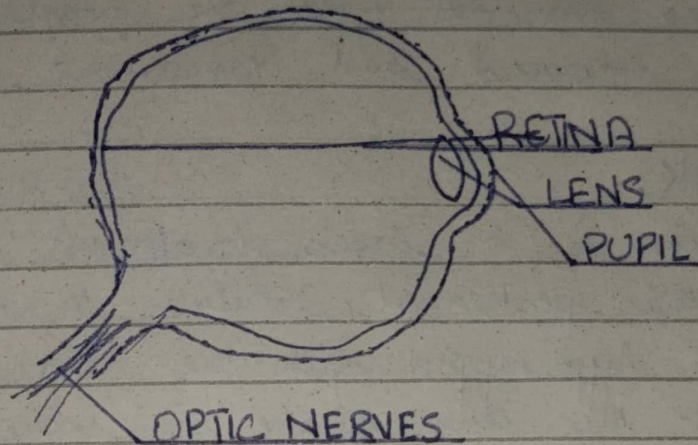 RETINA
LENS
PUPIL
OPTIC NERVES